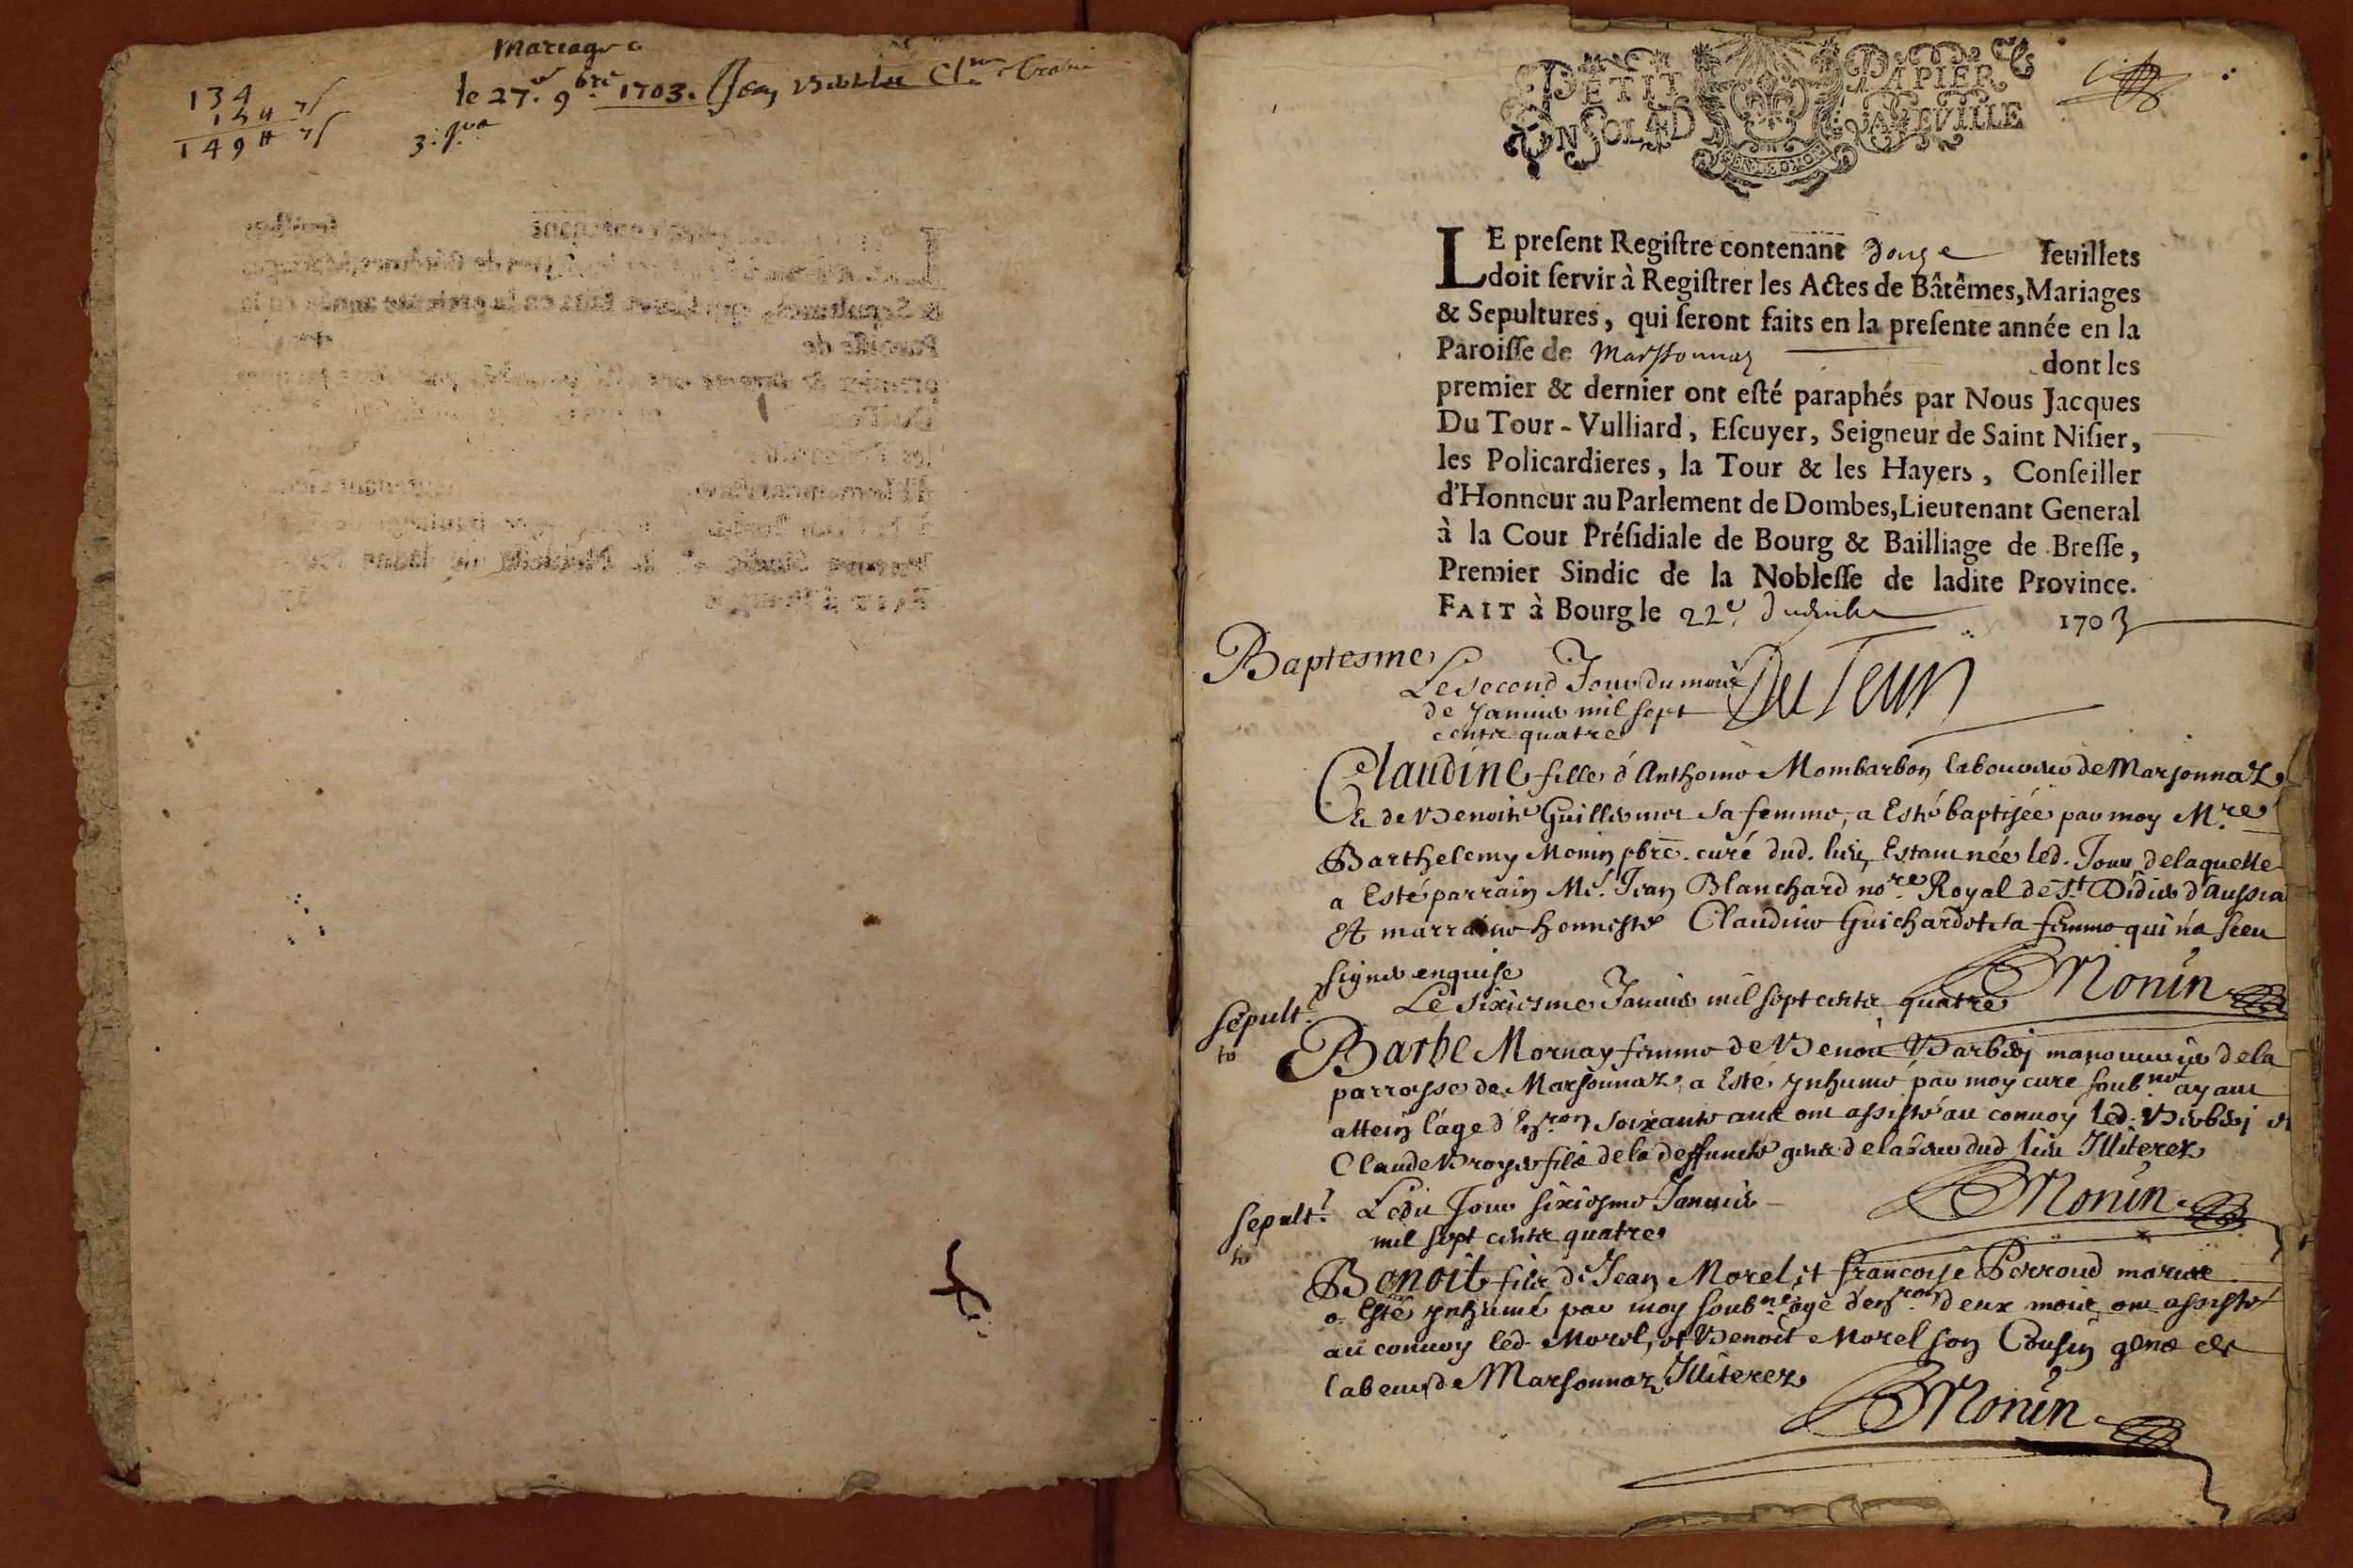 Mariage
134
15 ₶ 7 s
149 ₶ 7 s
le 27.e 9bre 1703. Jean
3.
PETIT PAPIER
EN SOL 4 D LA FEVILLE
LE preſent Regiſtre contenant douze feuillets
doit ſervir à Regiſtrer les Actes de Bâtêmes, Mariages
& Sepultures, qui ſeront faits en la preſente année en la
Paroiſſe de Marsonnaz dont les
premier & dernier ont eſté paraphés par Nous Jacques
Du Tour-Vulliard, Eſcuyer, Seigneur de Saint Niſier,
les Policardieres, la Tour & les Hayers, Conſeiller
d'Honneur au Parlement de Dombes, Lieutenant General
à la Cour Préſidiale de Bourg & Bailliage de Breſſe,
Premier Sindic de la Nobleſſe de ladite Province.
FAIT à Bourg le 22e decembre 1703
DuTour
Baptesme
Le second Jour du mois
de Janvier mil sept
cents quatre
Claudine fille d'Anthoine Mombarbon laboureur de Marsonnaz
& de Benoite Guillermet sa femme, a Esté baptisée par moy Mre
Barthelemy Monin pbre. curé dud. lieu, Estant née led. Jour, de laquelle
a Esté parrain Me. Jean Blanchard nore. Royal de St Didier d'Aussia
Et marraine honneste Claudine Guichardot sa femme qui n'a sceu
signer enquise
Monin
Sépult.
Le sixiesme Janvier mil sept cents quatre
Barbe Mornay femme de Benoit Barbery manouvrier de la
parroysse de Marsonnaz, a Esté ynhumé par moy curé soubné ayant
attein l'age d'Environ soixante ans ont assisté au convoy led. Berbery et
Claude Broyer fils de la deffuncte gens de labeur dud lieu Illiterez
Monin
Sepult.
Ledit Jour sixiesme Janvier
mil sept cents quatre
Benoit fils de Jean Morel, et francoise Perroud mariez
a Esté ynhumé par moy soubné agé d'environ deux mois, ont assisté
au convoy led. Morel, et Benoit Morel son Cousin gens de
labeur de Marsonnaz Illiterez
Monin